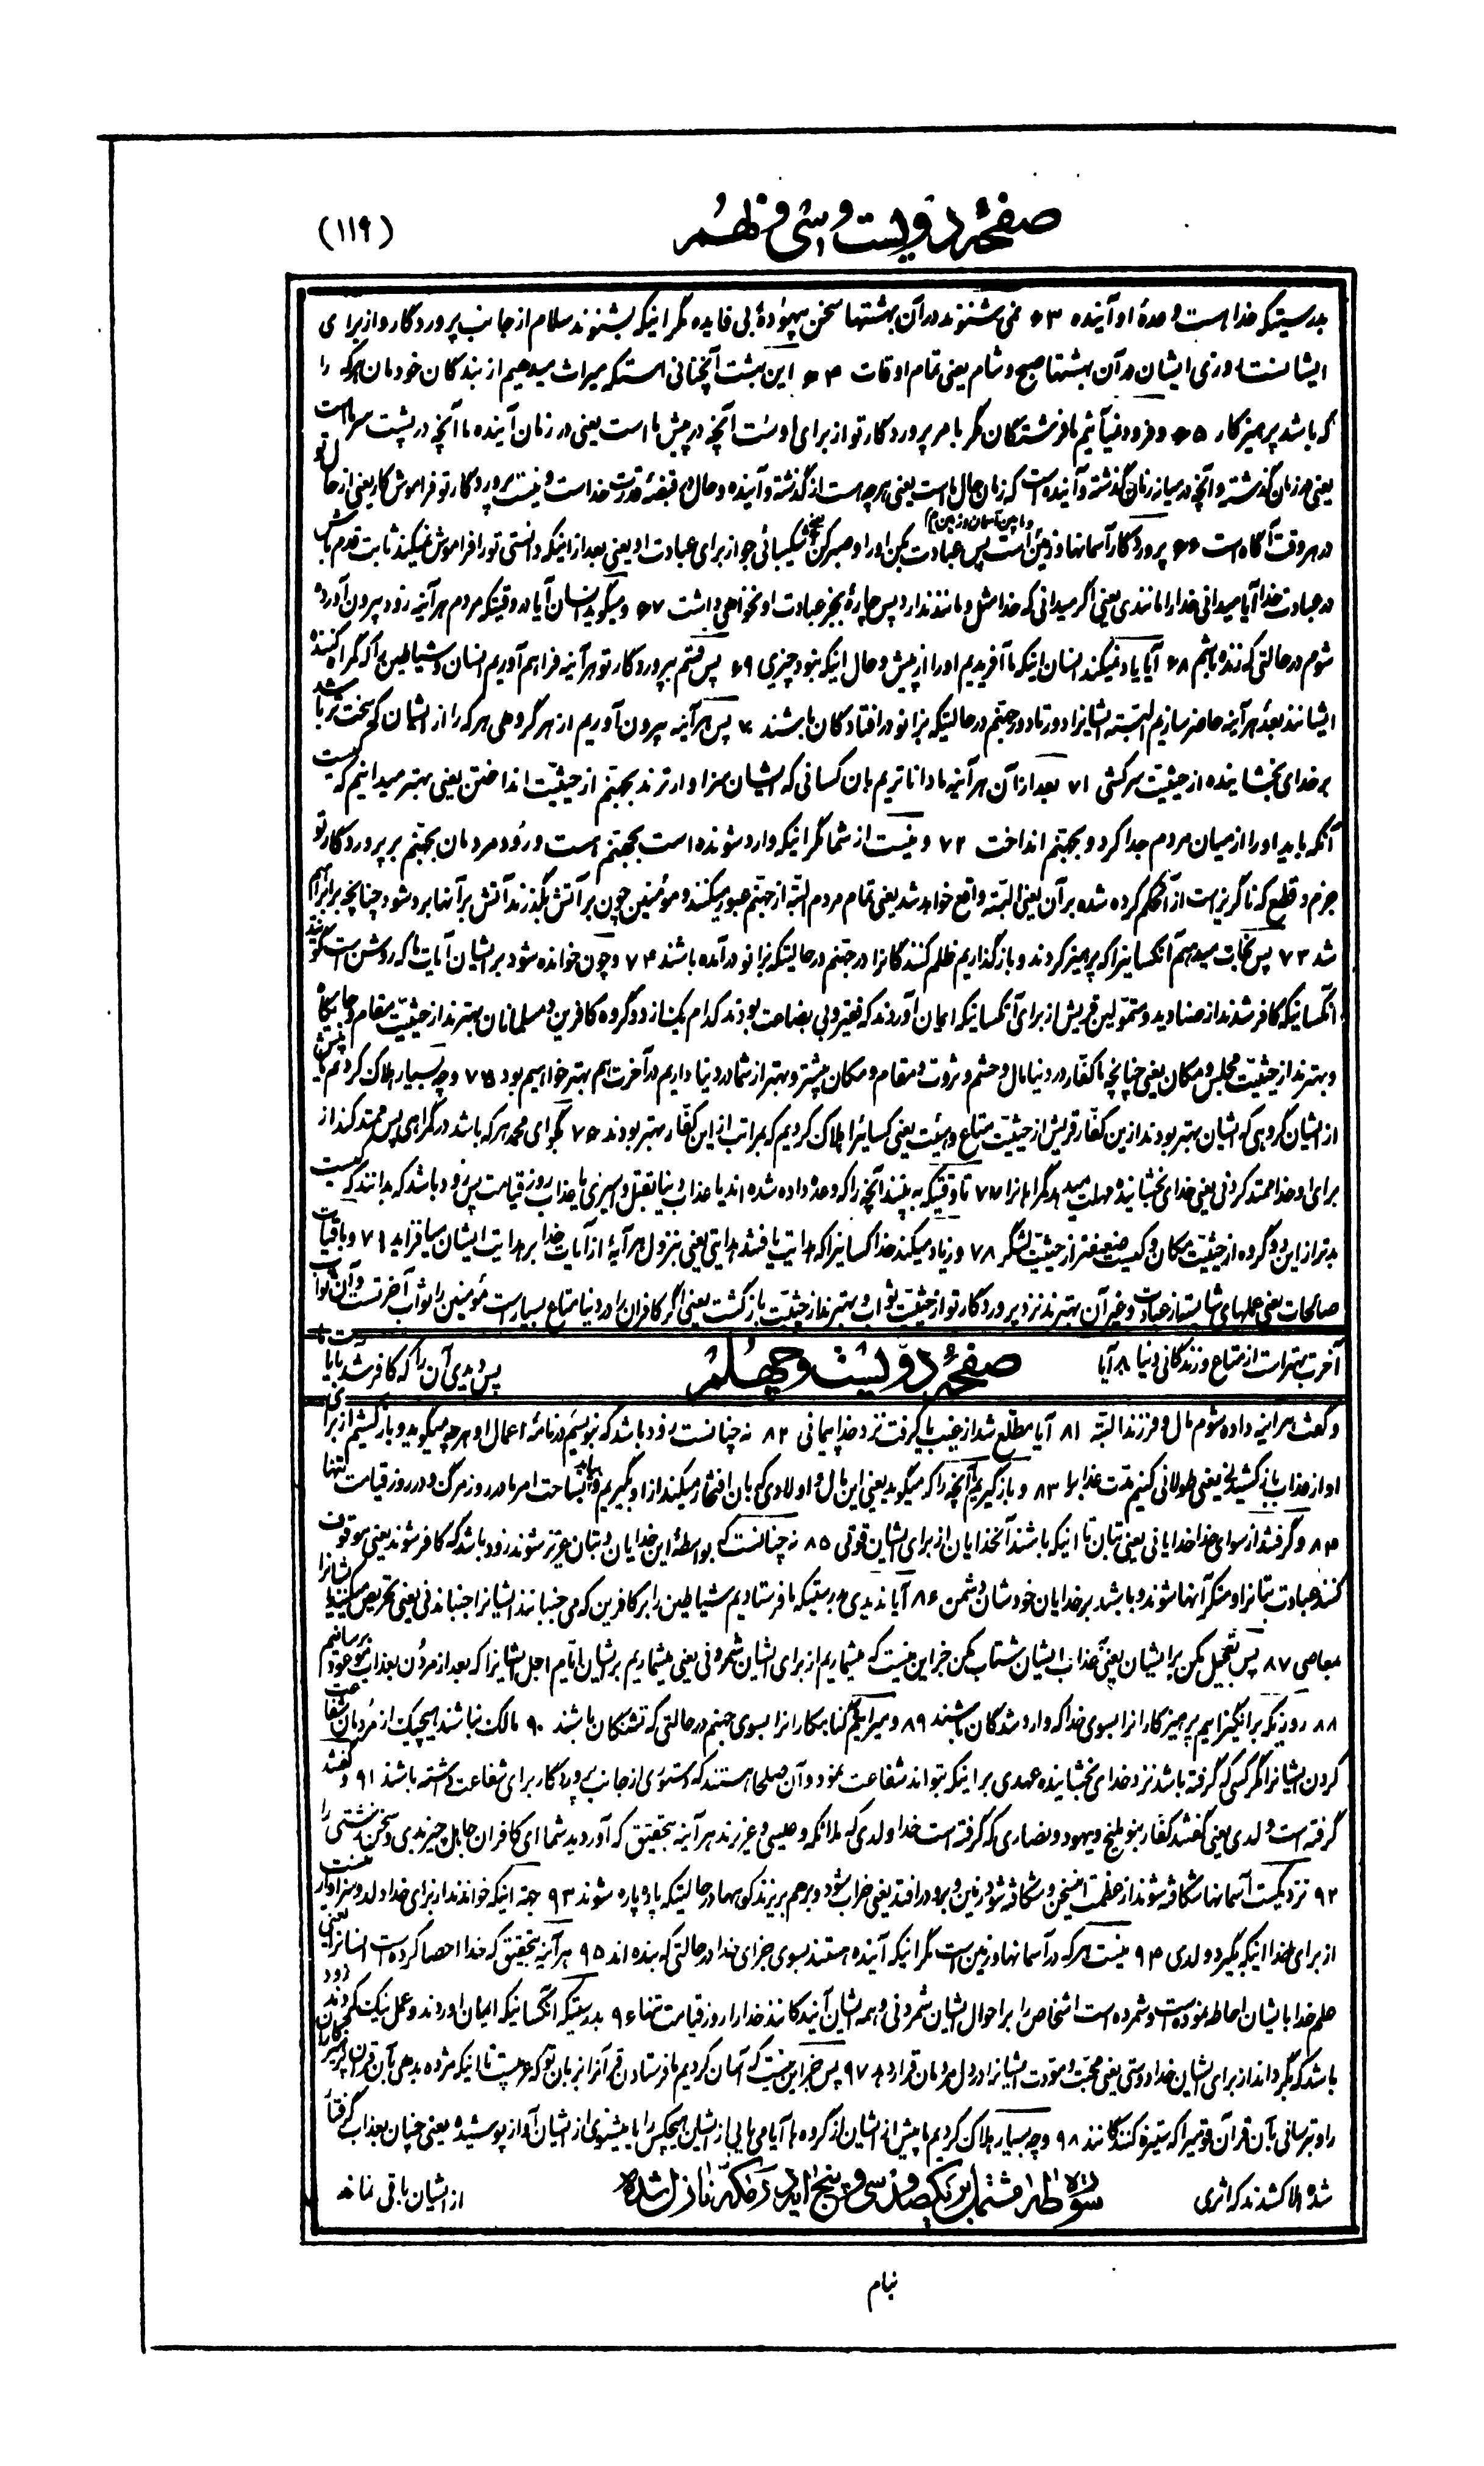 صفحهٔ دویست و سی و نهم
(۱۱۹)
بدرستیکه خدا هست وعدهٔ او آینده ۶۳ نمی شنوند در آن بهشتها سخن بیهودهٔ بی فایده مگر اینکه بشنوند سلام از جانب پروردگار و از برای
ایشانست روزی ایشان در آن بهشتها صبح و شام یعنی تمام اوقات ۶۴ این بهشت آنچنانی استکه میراث میدهیم از بندگان خودمان هرکه را
که باشد پرهیزکار ۶۵ و فرود نمیآئیم ما فرشتگان مگر بامر پروردگار تو از برای اوست آنچه در پیش ما است یعنی در زمان آینده ما آنچه در پشت سر ماست
یعنی در زمان گذشته و آنچه در میانه زمان گذشته و آینده است که زمان حال است یعنی هرچه هست از گذشته و آینده و حال در قبضهٔ قدرت خداست و نیست پروردگار تو فراموش کار یعنی از حال تو
در هر وقت آگاه است ۶۶ پروردگار آسمانها و زمین است و مابین آسمان و زمین پس عبادت بکن او را و صبر کن شکیبائی جو از برای عبادت او یعنی بعد از اینکه دانستی تو را فراموش نمیکند ثابت قدم باش
در عبادت خدا آیا میدانی خدا را مانندی یعنی اگر میدانی که خدا مثل و مانند ندارد پس چارهٔ بجز عبادت او نخواهی داشت ۶۷ و میگوید انسان آیا در وقتیکه مردم هر آینه زود بیرون آورده
شوم در حالتی که زنده باشم ۶۸ آیا یاد نمیکند انسان اینکه ما آفریدیم او را از پیش و حال اینکه نبود چیزی ۶۹ پس قسم بپروردگار تو هر آینه فراهم آوریم انسان و شیاطین را که گمراه کننده
ایشانند بعد هر آینه حاضر سازیم البته ایشانرا دورتادور جهنم در حالتیکه بزانو درافتادگان باشند ۷۰ پس هر آینه بیرون آوریم از هر گروهی هرکه را از ایشان که سخت تر باشد
بر خدای بخشاینده از حیثیت سرکشی ۷۱ بعد از آن هر آینه ما داناتریم بان کسانی که ایشان سزاوارترند بجهنم از حیثیت انداختن یعنی بهتر میدانیم که کیست
آنکه باید او را از میان مردم جدا کرد و بجهنم انداخت ۷۲ و نیست از شما مگر اینکه وارد شونده است بجهنم هست ورود مردمان بجهنم بر پروردگار تو
جزم و قطع که ناگریزست از آن حکم کرده شده بر آن یعنی البته واقع خواهد شد یعنی تمام مردم البته از جهنم عبور میکنند و مؤمنین چون بر آتش بگذرند آتش بر آنها برد شود چنانچه بر ابراهیم
شد ۷۳ پس نجات میدهیم آنکسانیرا که پرهیز کردند و باز گذاریم ظلم کنندگانرا در جهنم در حالتیکه بزانو درآمده باشند ۷۴ و چون خوانده شود بر ایشان آیات ما که روشن است گویند
آنکسانیکه کافر شدند از صنادید و متمولین قریش از برای آنکسانیکه ایمان آوردند که فقیر و بی بضاعت بودند کدام یک از دو گروه کافرین و مسلمانان بهترند از حیثیت مقام و جایگاه
و بهترند از حیثیت مجلس و مکان یعنی چنانچه ما کفار در دنیا مال و حشم و ثروت و مقام و مکان بیشتر و بهتر از شما در دنیا داریم در آخرت هم بهتر خواهیم بود ۷۵ و چه بسیار هلاک کردیم ما پیش
از ایشان گروهی که ایشان بهتر بودند از این کفار قریش از حیثیت متاع و هیئت یعنی کسانیرا هلاک کردیم که بمراتب از این کفار بهتر بودند ۷۶ بگو ای محمد هرکه باشد در گمراهی پس ممتد کند از
برای او خدا ممتد کردنی یعنی خدای بخشاینده مهلت میدهد گمراهانرا ۷۷ تا وقتیکه به بینند آنچه را که وعده داده شده اند یا عذاب دنیا بقتل و اسیری یا عذاب روز قیامت پس زود باشد که بدانند که کیست
بدتر از این دو گروه از حیثیت مکان و کیست ضعیفتر از حیثیت لشگر ۷۸ و زیاد میکند خدا کسانیرا که هدایت یافتند هدایتی یعنی بنزول هر آیهٔ از آیات خدا بر هدایت ایشان میافزاید ۷۹ و باقیات
صالحات یعنی عملهای شایسته از عبادت و غیر آن بهترند نزد پروردگار تو از حیثیت ثواب و بهترند از حیثیت بازگشت یعنی اگر کافران را در دنیا متاع بسیار است مؤمنین را ثواب آخرتست و آن ثواب
آخرت بهتر است از متاع و زندگانی دنیا ۸۰ آیا
صفحهٔ دویست و چهلم
پس دیدی آن را که کافر شد بآیات ما
و گفت هر آینه داده شوم مال و فرزند البته ۸۱ آیا مطلع شد از غیب یا گرفت نزد خدا پیمانی ۸۲ نه چنانست زود باشد که بنویسیم در نامهٔ اعمال او هرچه میگوید و باز کشیم از برای
او از عذاب باز کشیدنی یعنی طولانی کنیم مدت عذابرا ۸۳ و باز گیریم آنچه را که میگوید یعنی این مال و اولادی که بان افتخار میکند از او بگیریم و بیاید بساحت امر ما در روز مرگ و در روز قیامت تنها
۸۴ و گرفتند از سوای خدا خدایانی یعنی بتان تا اینکه باشند آنخدایان از برای ایشان قوتی ۸۵ نه چنانست که بواسطهٔ این خدایان و بتان عزیز شوند زود باشد که کافر شوند یعنی موقوف
کنند عبادت بتانرا و منکر آنها شوند و باشند بر خدایان خودشان دشمن ۸۶ آیا ندیدی بدرستیکه ما فرستادیم شیاطین را بر کافرین که می جنبانند ایشانرا جنباندنی یعنی تحریص میکنند ایشانرا
بمعاصی ۸۷ پس تعجیل مکن بر ایشان یعنی بعذاب ایشان شتاب مکن جز این نیست که میشماریم از برای ایشان شمردنی یعنی میشماریم بر ایشان ایام اجل ایشانرا که بعد از مردن بعذاب موعود برسانیم
۸۸ روزیکه برانگیزانیم پرهیزکارانرا بسوی خدا که وارد شدگان باشند ۸۹ و میرانیم گناهکارانرا بسوی جهنم در حالتی که تشنگان باشند ۹۰ مالک نباشند هیچیک از مردمان شفاعت
کردن ایشانرا مگر کسی که گرفته باشد نزد خدای بخشاینده عهدی بر اینکه بتواند شفاعت نمود و آن صلحا هستند که دستوری از جانب پروردگار برای شفاعت داشته باشند ۹۱ و گفتند
گرفته است ولدی یعنی گفتند کفار بنو ملیح و یهود و نصاری که گرفته است خدا ولدی که ملائکه و عیسی و عزیرند هر آینه بتحقیق که آوردید شما ای کافران جاهل چیز بدی و سخن زشتی را
۹۲ نزدیکست آسمانها شکافته شوند از عظمت این سخن و شکافته شود زمین و برو درافتد یعنی خراب شود و برهم بریزند کوهها در حالتیکه پاره پاره شوند ۹۳ بجهة اینکه خواندند از برای خدا ولد و سزاوار نیست
از برای خدا اینکه بگیرد ولدی ۹۴ نیست هرکه در آسمانها و زمین است مگر اینکه آینده هستند بسوی جزای خدا در حالتی که بنده اند ۹۵ هر آینه بتحقیق که خدا احصا کرده است ایشانرا یعنی
علم خدا بایشان احاطه نموده است و شمرده است اشخاص را بر احوال ایشان شمردنی و همه ایشان آیندگانند خدا را روز قیامت تنها ۹۶ بدرستیکه آنکسانیکه ایمان آوردند و عمل نیک کردند زود
باشد که بگرداند از برای ایشان خدا دوستی یعنی محبت و مودت ایشانرا در دل مردمان قرار دهد ۹۷ پس جز این نیست که آسان کردیم ما فرستادن قرآنرا بزبان تو که عربیست تا اینکه مژده بدهی بآن قرآن پرهیزکاران
را و بترسانی بآن قرآن قومیرا که ستیزه کنندگانند ۹۸ و چه بسیار هلاک کردیم ما پیش از ایشان از گروه ها آیا می یابی از ایشان هیچکس را یا میشنوی از ایشان آواز پوسشیده یعنی چنان بعذاب گرفتار
شده هلاک شدند که اثری
سورهٔ طه مشتمل بر یکصد و سی و پنج آیه در مکه نازل شده
از ایشان باقی نماند
بنام